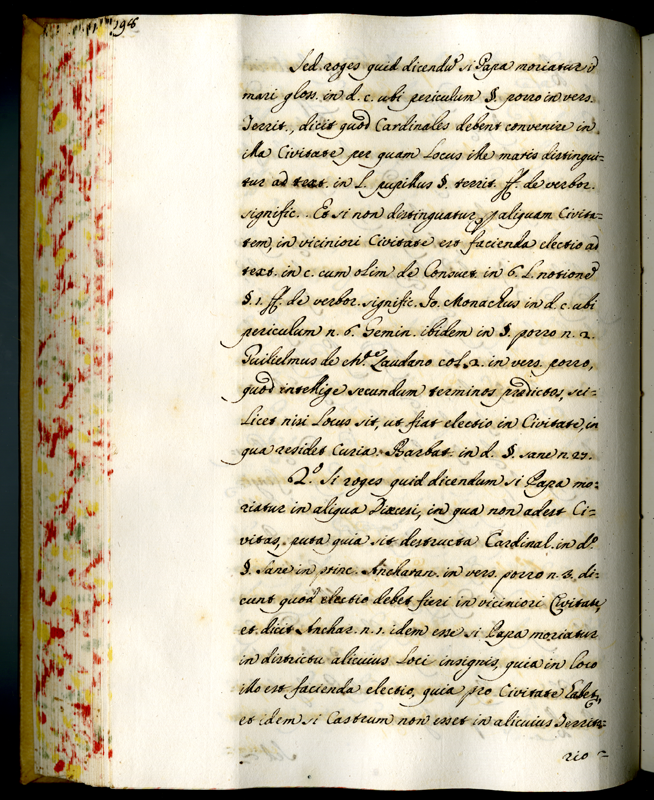 Sed roges quid dicendũ si Papa moriatur ĩ
mari gloss. in d. c. ubi periculum §. porro in vers.
Territ., dicit quod Cardinales debent convenire in
illa Civitate per quam Locus ille maris distingui=
tur ad text. in l. pupillus §. territ. ff. de verbor.
signific. Et si non distinguatur p aliquam Civita=
tem, in viciniori Civitate est facienda electio ad
text. in c. cum olim de Consuet. in 6. L. notione
§. 1. ff. de verbor. signific. Io. Monachus in d. c. ubi
periculum n. 6. Gemin. ibidem in §. porro n. 2.
Guilielmus de Mte. Laudano col. 2. in vers. porro,
quod intellige secundum terminos prędictos, sci=
licet nisi Locus sit, ut fiat electio in Civitate, in
qua residet Curia. Barbat. in d. §. sane n. 27.
2.º Si roges quid dicendum si Papa mo=
riatur in aliqua Diœcesi, in qua non adest Ci=
vitas, puta quia sit destructa Cardinal. in d.º
§. Sane in princ. Ancharan. in vers. porro n. 3. di=
cunt quod electio debet fieri in viciniori Civitate,
et dicit Anchar. n. 1. idem esse si Papa moriatur
in districtu alicuius Loci insignis, quia in loco
illo est facienda electio, quia pro Civitate habet,
et idem si Castrum non esset in alicuius Territo=
rio =